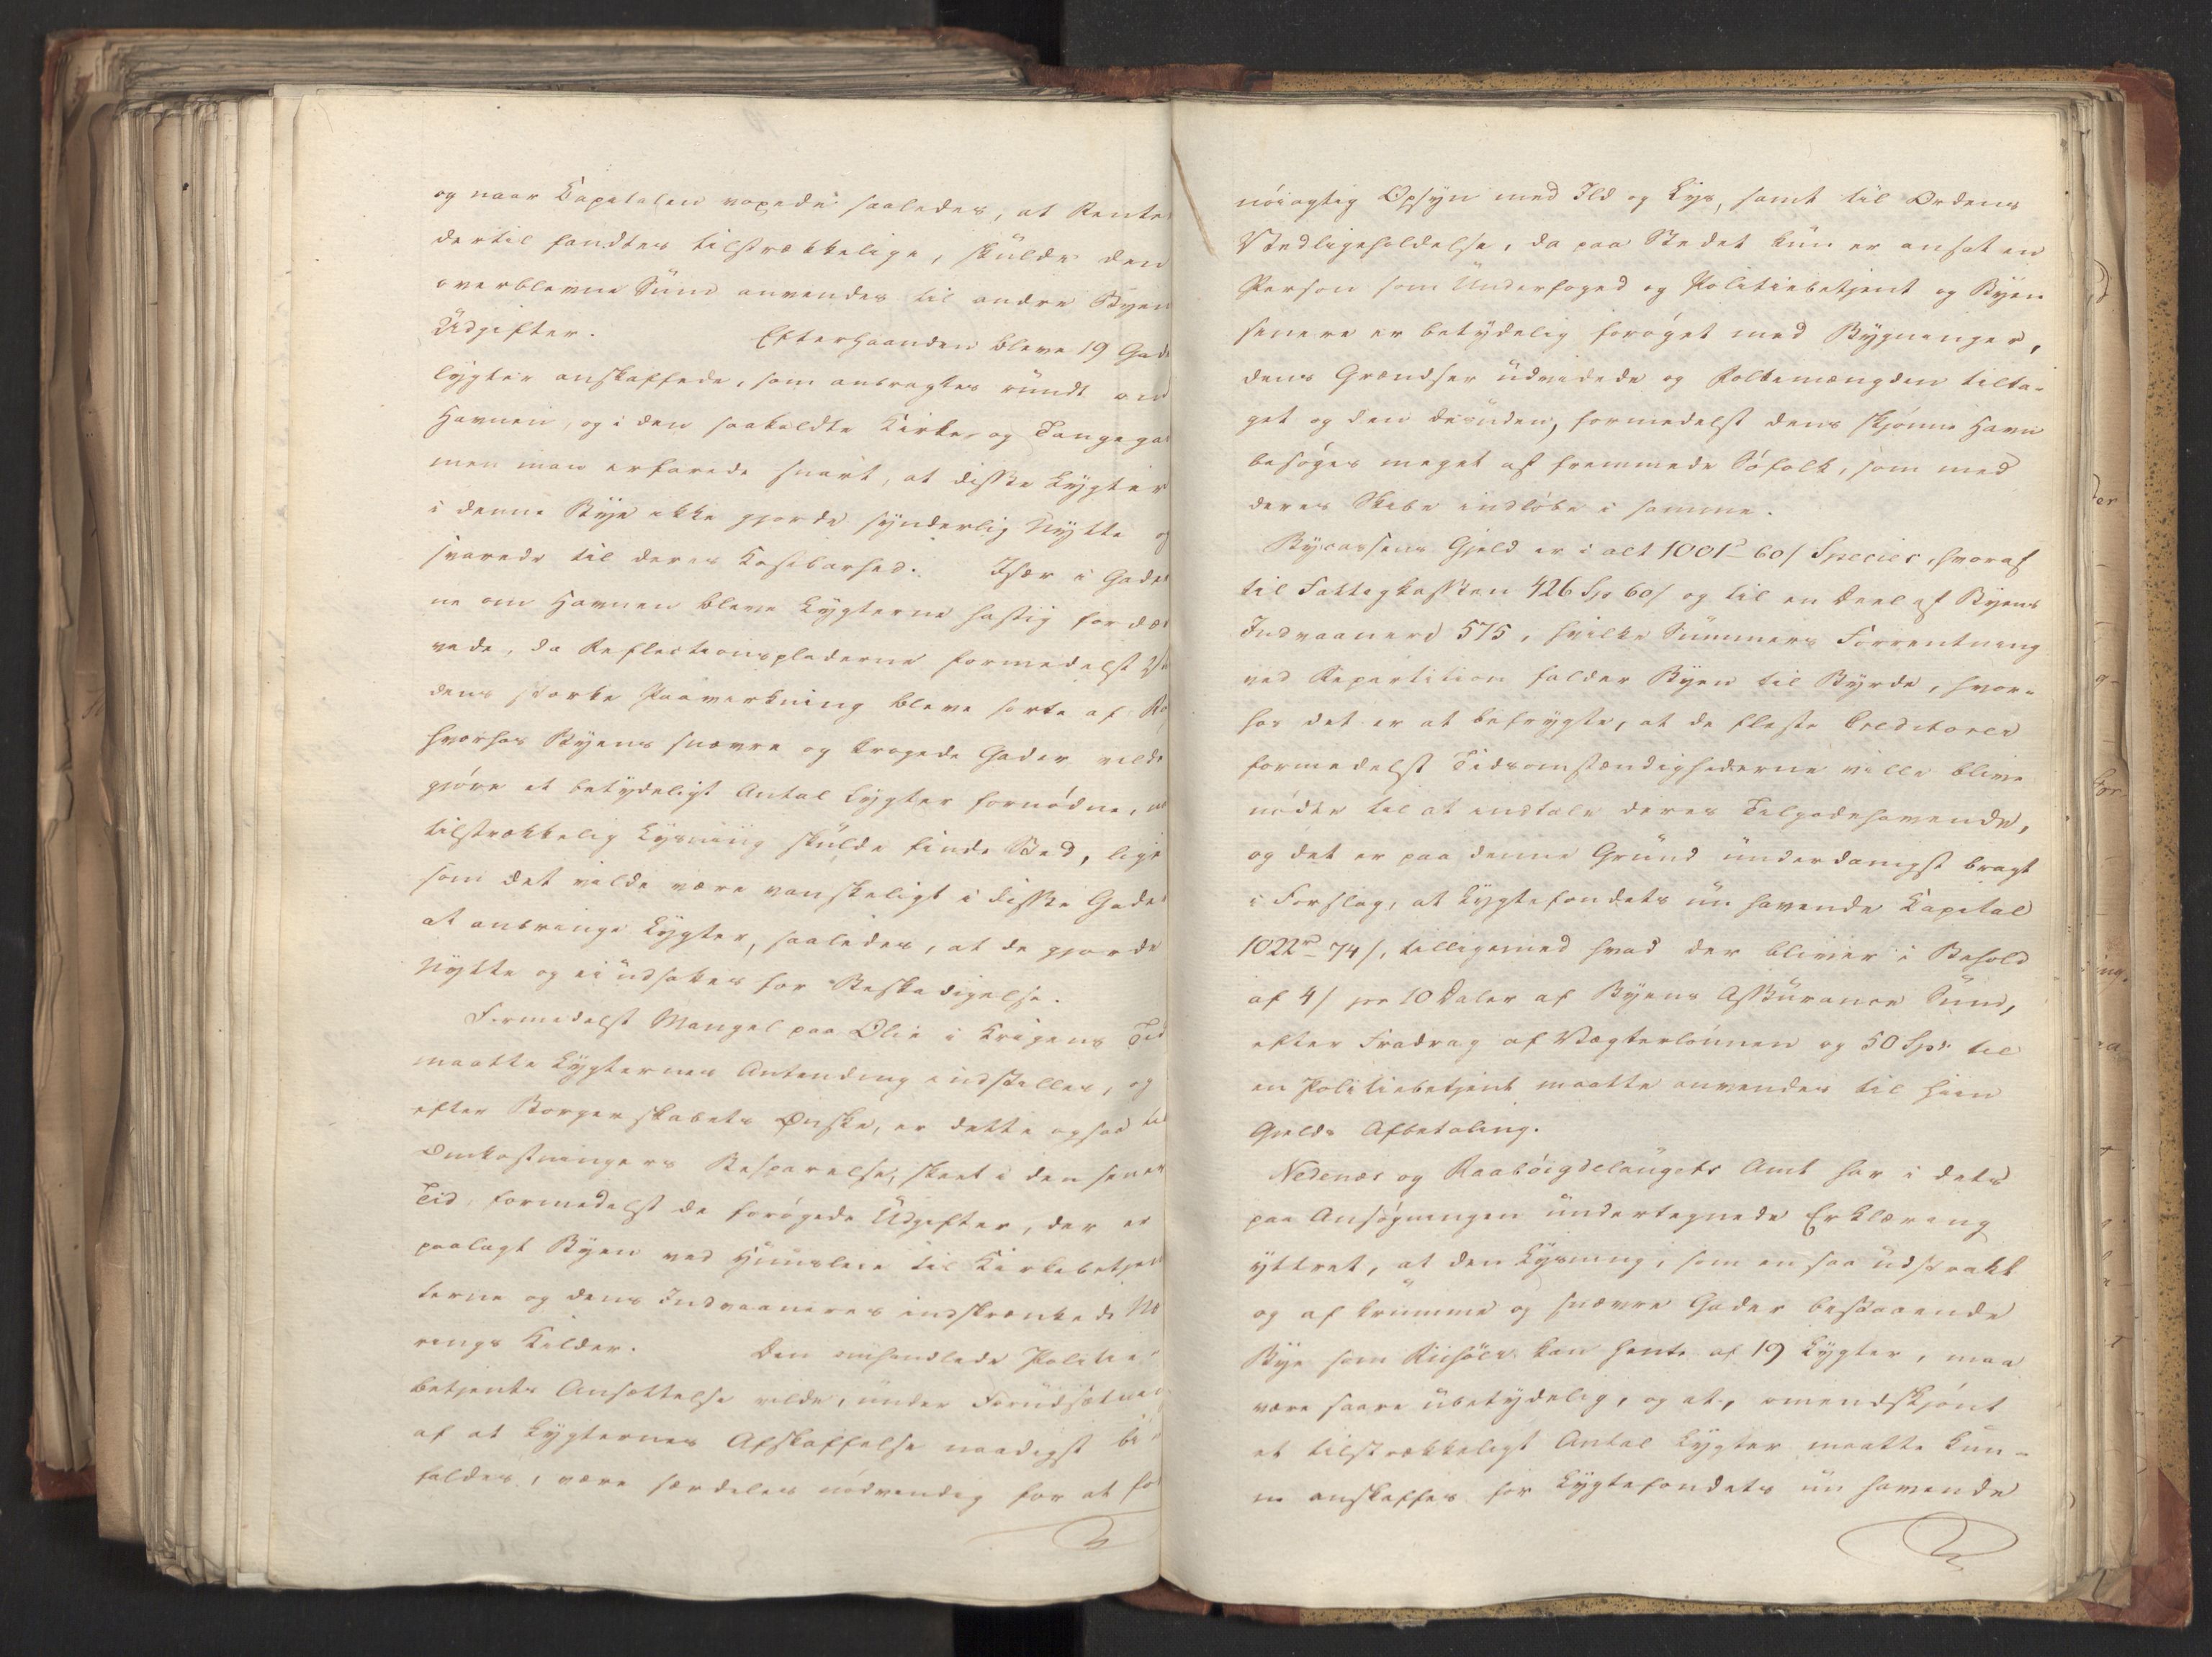 og naar Capitalen voxede saaledes, at Rente
dertil fandtes tilstrækkelige, skulde den
overblevne Sum anvendes til andre Byen
Udgifter. Efterhaanden bleve 19 Gade
lygter anskaffede, som anbragtes rundt om
Havnen, og i den saakaldte Kirke- og Tangega
men man erfarede snart, at disse Lygter
i denne Bye ikke gjorde synderlig Nytte og
svarede til deres Kostbarhed. Især i Gader
ne om Havnen bleve Lygterne hastig fordær
vede, da Reflectionspladerne formedelst
dens stærke Paavirkning bleve sorte af
hvorhos Byens snævre og krogede Gader vilde
gjöre et betydeligt Antal Lygter fornödne,
tilstrækkelig Lysning skulde finde Sted, lige
som det vilde være vanskeligt i disse Gader
at anbringe Lygter, saaledes, at de gjorde
Nytte og ei udsattes for Beskadigelse.
Formedelst Mangel paa Olie i Krigens Tid
maatte Lygternes Antending indstilles, og
efter Borgerskabets Ønske, er dette ogsaa til
Omkostningers Besparelse, skeet i den senere
Tid, formedelst de forögede Udgifter, der er
paalagt Byen ved Huusleie til Kirkebetjen
terne og dens Indvaaneres indskrænkede Næ
rings Kilder. Den omhandlede Politie-
betjents Ansættelse vilde, under Forudsætning
af at Lygternes Afskaffelse naadigst bi-
faldes, være særdeles nödvendig for at fö
nöiagtig Opsyn med Ild og Lys, samt til Ordens
Vedligeholdelse, da paa Stedet kun er ansat en
Person som Underfoged og Politiebetjent og Byen
senere er betydelig foröget med Bygninger,
dens Grændser udvidede og Folkemængden tilta-
get og den desuden, formedelst dens skjönne Havn
besöges meget af fremmede Söfolk, som med
deres Skibe indlöbe i samme.
Bycassens Gjeld er i alt 1001 60 s Species, hvoraf
til Fattigkassen 426 Sp 60 s og til en Deel af Byens
Indvaanere 575, hvilke Summers Forrentning
ved Repartition falder Byen til Byrde, hvor-
hos det er at befrygte, at de fleste Creditorer
formedelst Tidsomstændighederne ville blive
nödte til at indtale deres Tilgodehavende,
og det er paa denne Grund underdanigst bragt
i Forslag, at Lygtefondets nu havende Capital
1022 - 74 s, tilligemed hvad der bliver i Behold
af 4 s pr 10 Daler af Byens Assurance Sum,
efter Fradrag af Vægterlönnen og 50 Spd til
en Politiebetjent maatte anvendes til hiin
Gjelds Afbetaling.
Nedenæs og Raaböigdelaugets Amt har i dets
paa Ansögningen undertegnede Erklæring
yttret, at den Lysning, som en saa udstrakt
og af krumme og snævre Gader bestaaende
Bye som Riisöer kan hente af 19 Lygter, maa
være saare ubetydelig, og at, omendskjönt
et tilstrækkeligt Antal Lygter maatte kun-
ne anskaffes for Lygtefondets nu havende